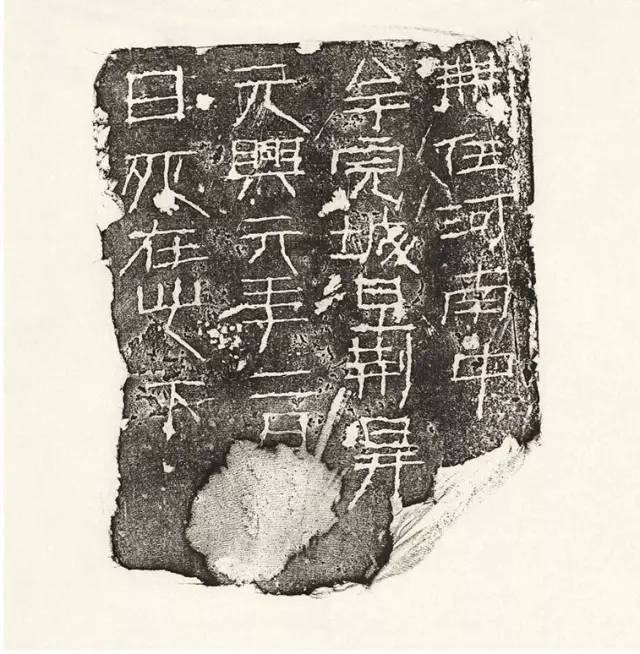 無任河南中
牟完城旦荊昇
元興元年二月
日死在此下